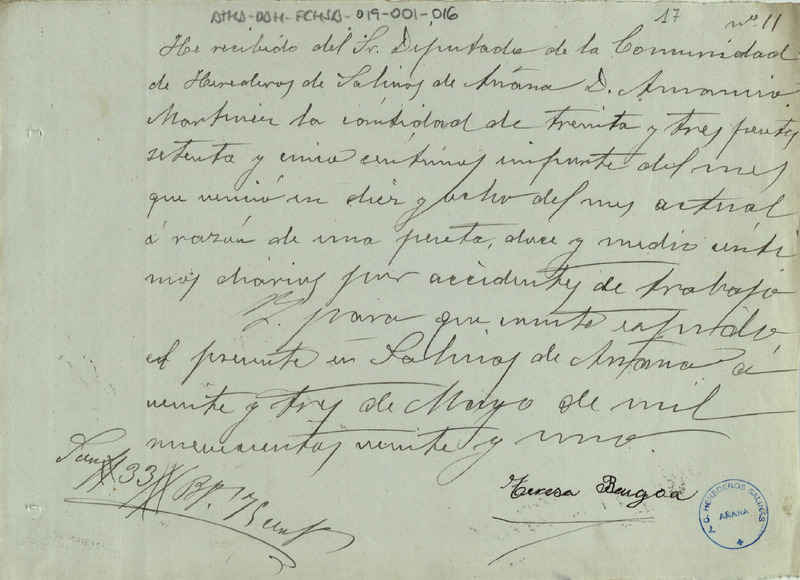 ATHA-DAH-FCHSA-019-001-016
17 nº 11
He recibido del Sr. Diputado de la Comunidad
de Herederos de Salinas de Añana D. Amancio
Martinez la cántidad de treinta y tres pesetas
setenta y cinco céntimos importe del mes
que venció en diez y ocho del mes actual
á razón de una peseta, doce y medio cénti
mos diários por accidentes de trabajo
Y para que conste expido
el presente en Salinas de Añana á
veinte y tres de Mayo de mil
nuevecientos veinte y uno.
Son # 33 # Pts. 75 cents
Teresa Bengoa
C. HEREDEROS SALINAS
AÑANA